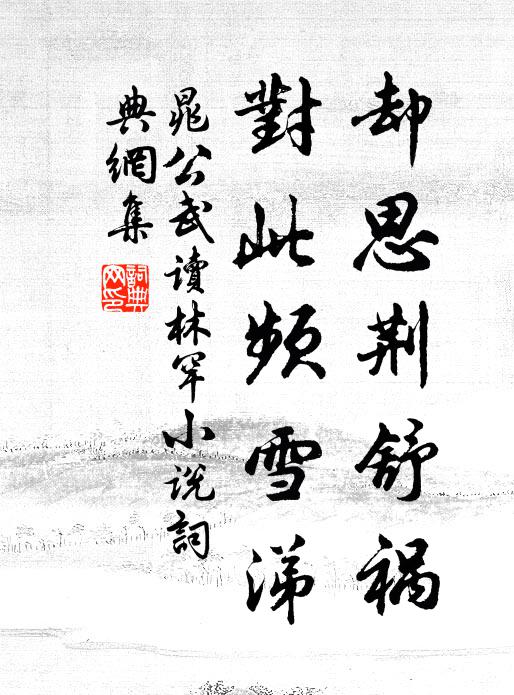 却思荆舒祸
對此频雪涕
晁公武读林罕小说詞
典網集
詞典网印